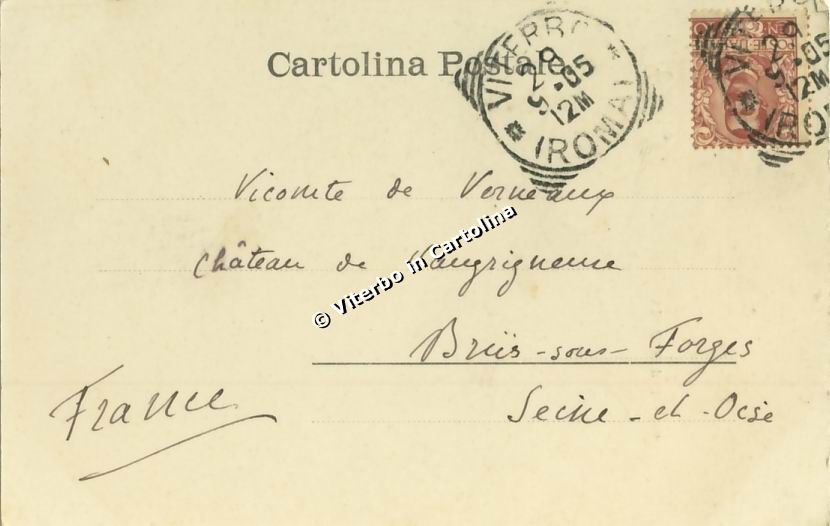 Cartolina Postale
VITERBO
29
9-05
12M
(ROMA)
VITERBO
29
9-05
12M
Vicomte de Verneaux
Château de Vaugrigneuse
© Viterbo in Cartolina
Briis-sous-Forges
France
Seine-et-Oise